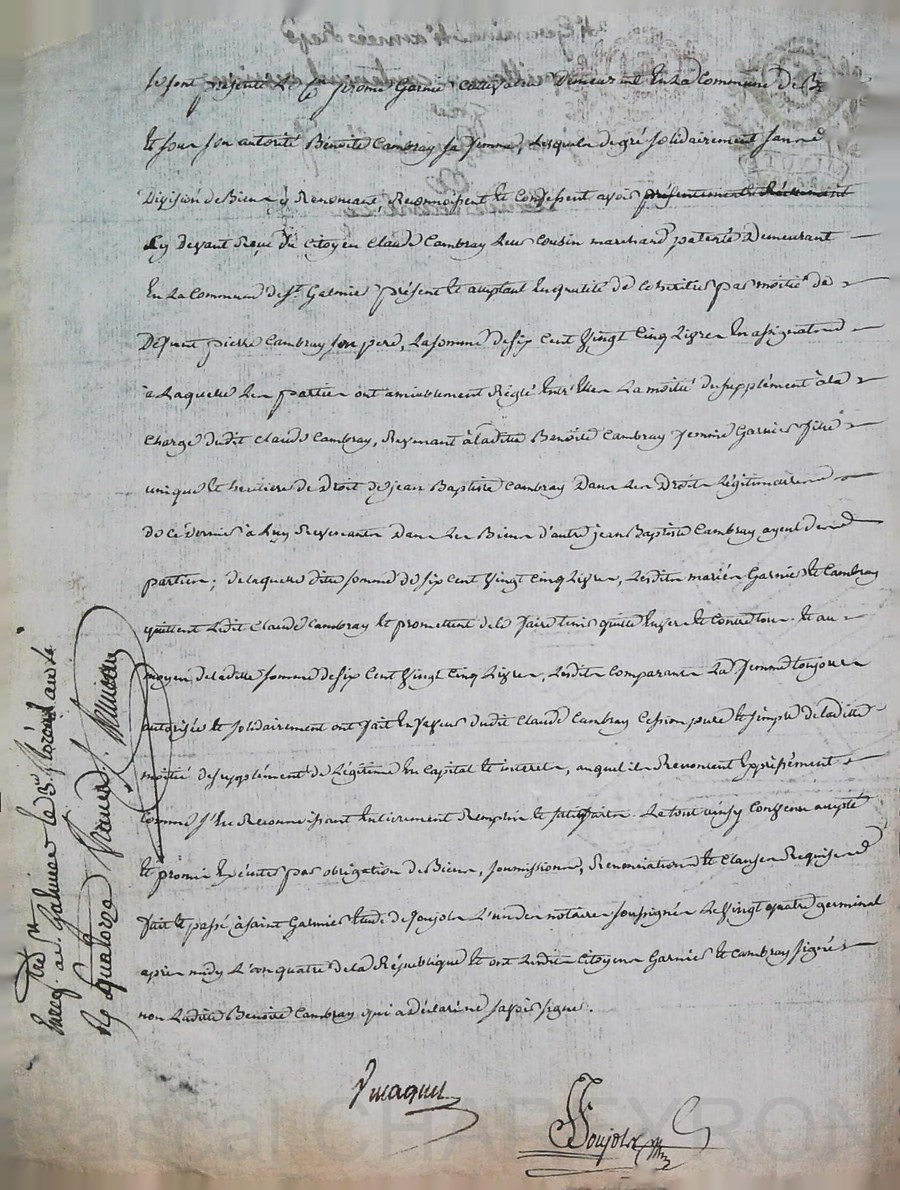 Se sont présenté le Cen jerome Garnier cultivateur Demeurant En La Commune De
Et sous son autorité Benoite Cambray sa femme, Lesquels de gré solidairement sans
Division de Biens y Renonceant, Reconnoissent et Confessent avoir présentement Réellement
Cy Devant Reçu du Citoyen Claude Cambray Leur Cousin marchand patenté Demeurant
En La Commune de St. Galmier présent et acceptant En qualité de Coheritier par moitié de
Deffunt pierre Cambray son pere, La somme de six Cent Vingt Cinq Livres En assignats
à Laquelle Les parties ont amiablement Réglé Entr'Elles La moitié du supplément à la
Charge dudit Claude Cambray, Revenant à laditte Benoite Cambray femme Garnier fille
unique et heritiere de Droit de jean Baptiste Cambray Dans Les Droits Légitimaires
de Ce dernier à Luy Revenants Dans Les Biens d'autre jean Baptiste Cambray ayeul des
parties; de laquelle ditte somme de six Cent Vingt Cinq Livres, Lesdits mariés Garnier et Cambray
quittent Ledit Claude Cambray et promettent de le faire tenir quitte Envers et Contre tous. Et au
moyen de laditte somme de six Cent Vingt Cinq Livres, Lesdits Comparants La femme toujours
autorisée et solidairement ont fait En faveur dudit Claude Cambray Cession pure et simple de laditte
moitié de supplément de Légitime En Capital et interets, auquel ils Renoncent Expressément
Comme s'En Reconnoissant Entierement Remplis et satisfaits. Le tout ainsy Convenu accepté
Et promis Exécuter par obligation de Biens, soumissions, Renonciations et Clauses Requises
fait et passé à saint Garmier Etude de soujols L'un des notaires soussignés Le Vingt quatre germinal
après midy L'an quatre de la République Et ont Lesdits Citoyens Garnier et Cambray signés
non Laditte Benoite Cambray qui a déclaré ne savoir signer.
Enreg. à St. Galmier le 3 floréal an 4e
Rç quatorze francs
Soujols